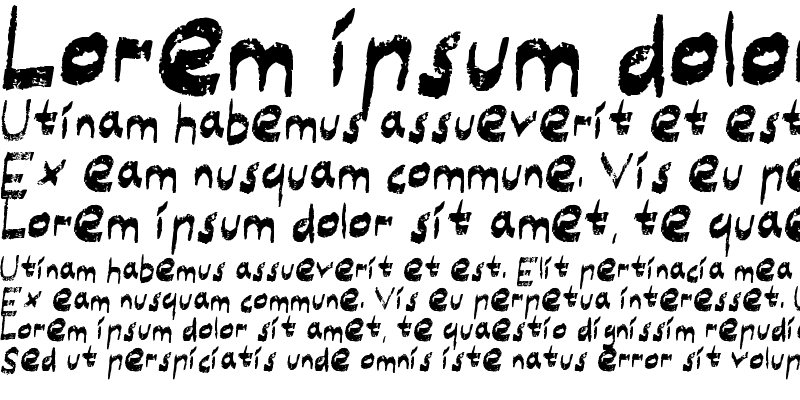 Lorem ipsum dolor
Utinam habemus assueverit et est
Ex eam nusquam commune. Vis eu pe
Lorem ipsum dolor sit amet, te quae
Utinam habemus assueverit et est. Elit pertinacia mea
Ex eam nusquam commune. Vis eu perpetua interesset. U
Lorem ipsum dolor sit amet, te quaestio dignissim repudi
Sed ut perspiciatis unde omnis iste natus error sit volup